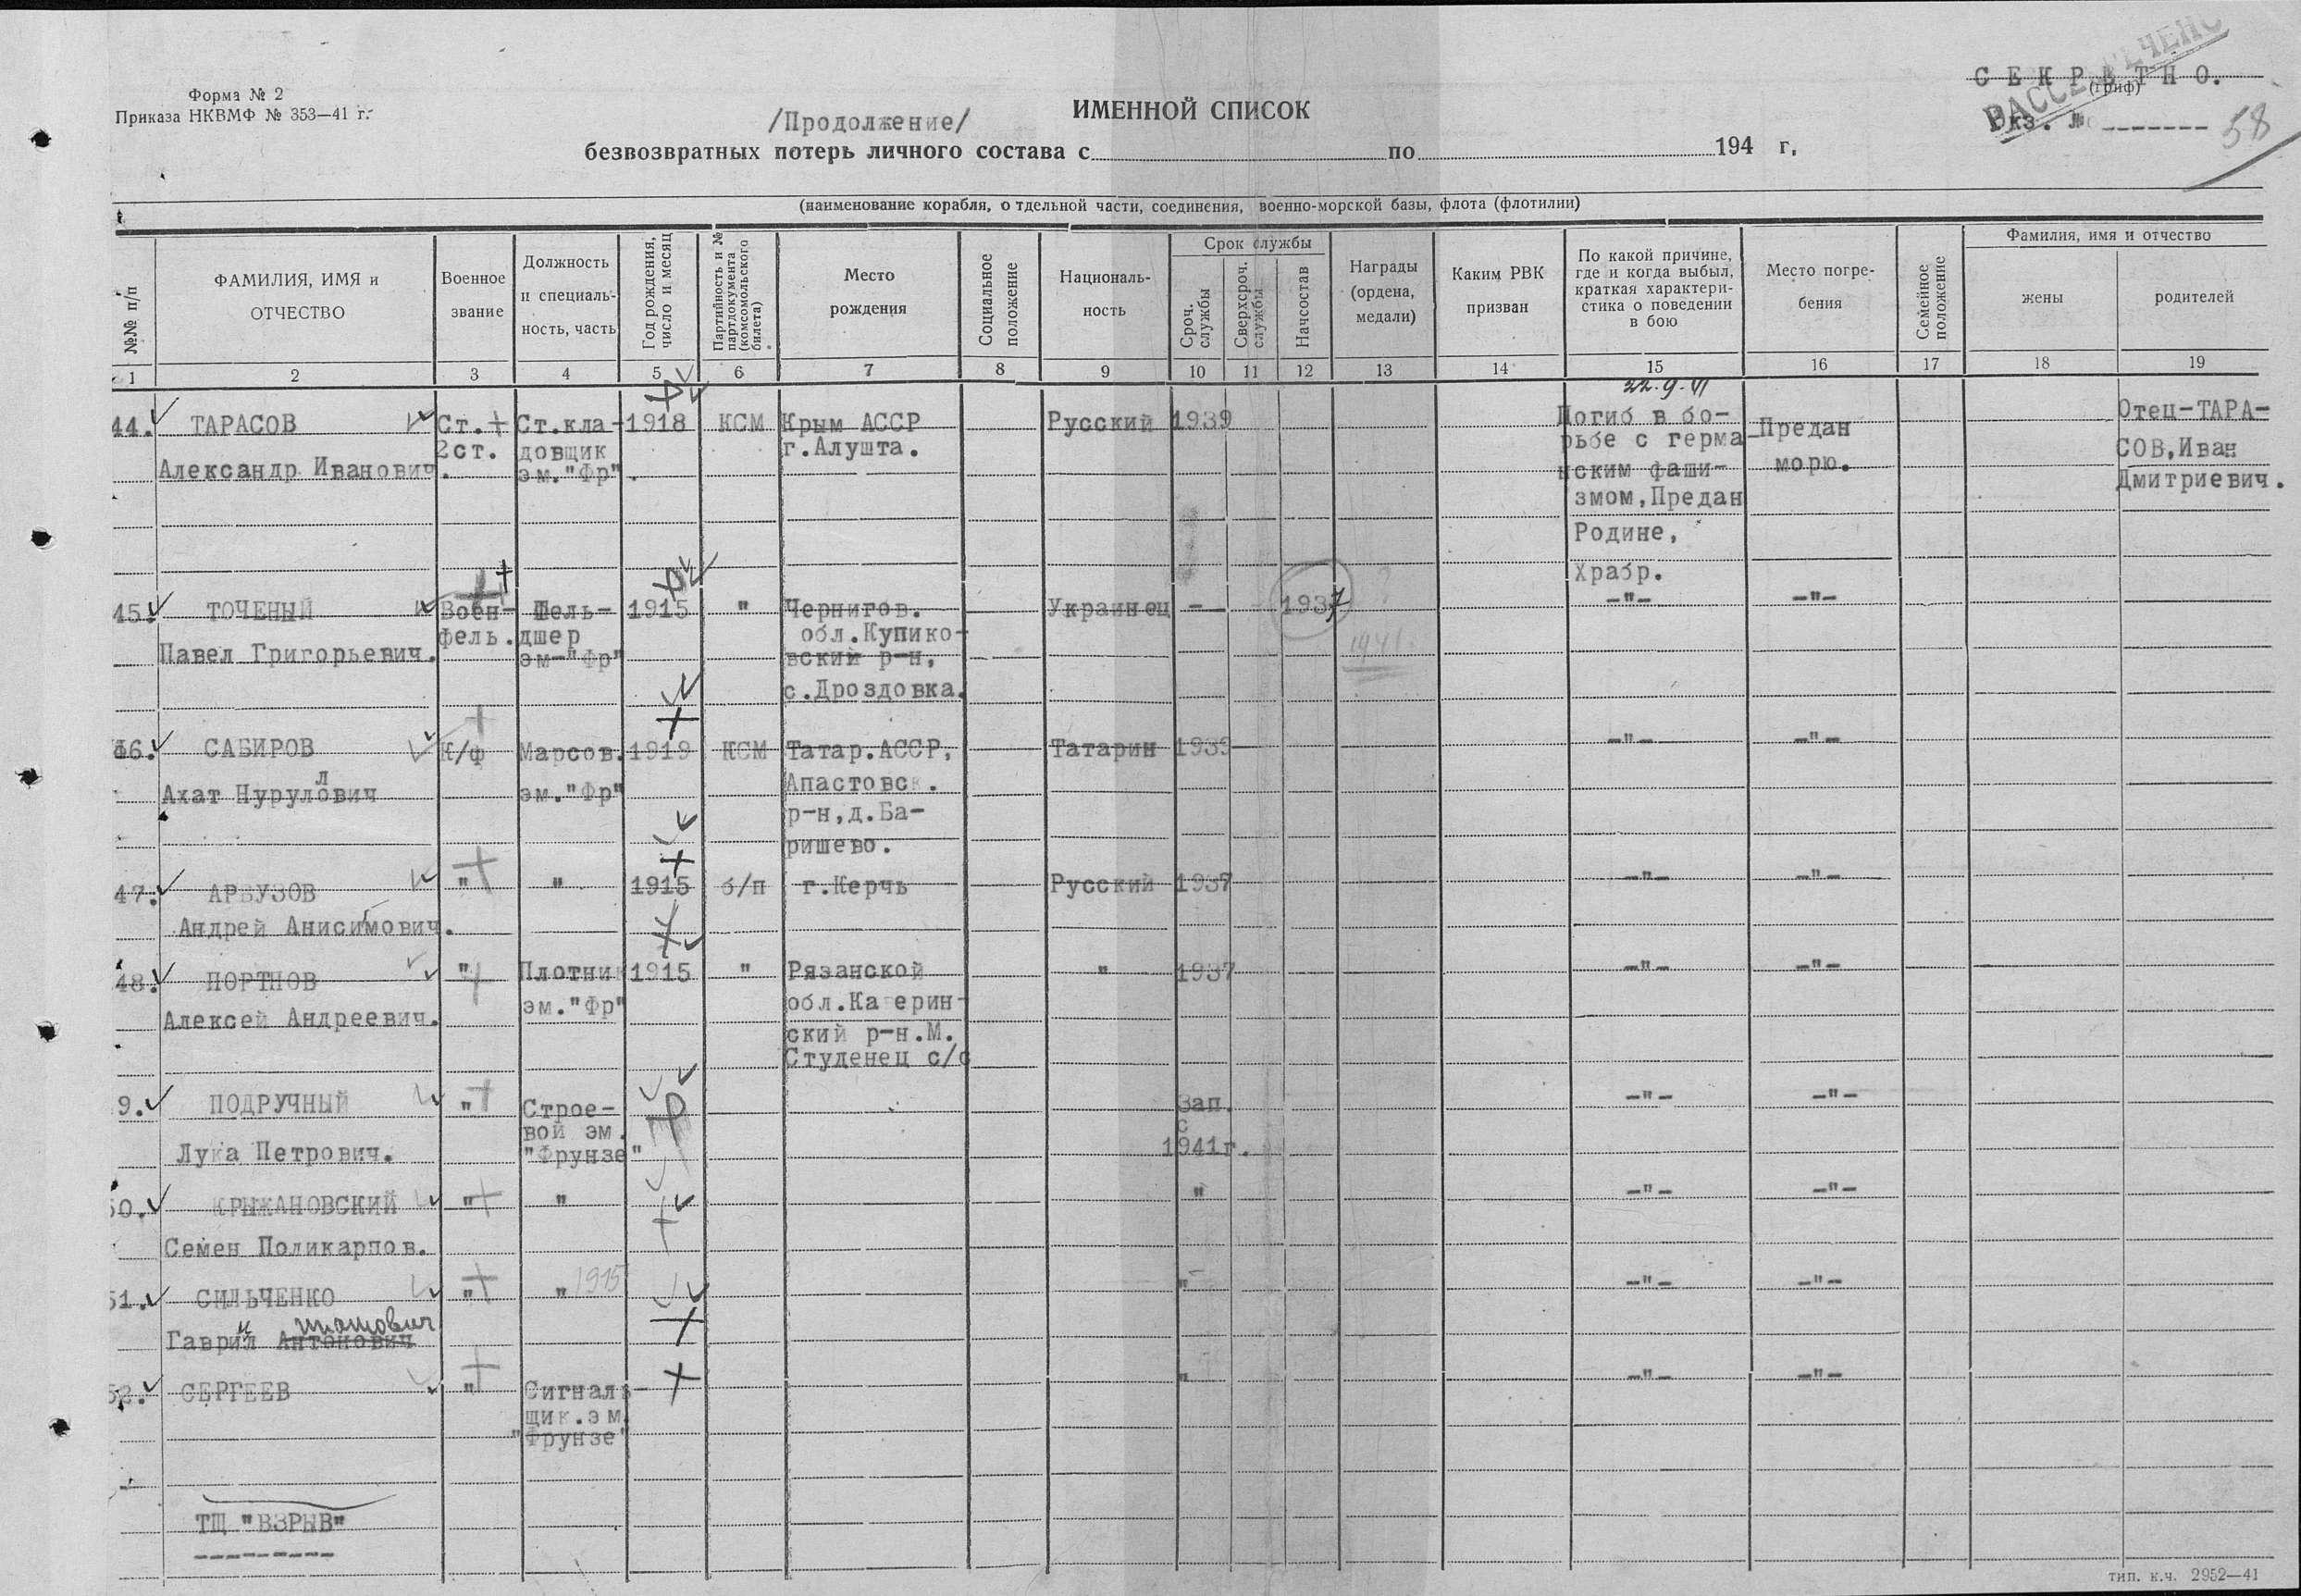 Форма № 2
Приказа НКВМФ № 353—41 г.
СЕКРЕТНО.
(гриф)
РАССЕКРЕЧЕНО
Экз. №
58
ИМЕННОЙ СПИСОК
/Продолжение/
безвозвратных потерь личного состава с по 194 г.
(наименование корабля, отдельной части, соединения, военно-морской базы, флота (флотилии)
№№ п/п
ФАМИЛИЯ, ИМЯ и
ОТЧЕСТВО
Военное
звание
Должность
и специаль-
ность, часть
Год рождения,
число и месяц
Партийность и №
партдокумента
(комсомольского
билета)
Место
рождения
Социальное
положение
Националь-
ность
Срок службы
Сроч.
службы
Сверхсроч.
службы
Начсостав
Награды
(ордена,
медали)
Каким РВК
призван
По какой причине,
где и когда выбыл,
краткая характери-
стика о поведении
в бою
Место погре-
бения
Семейное
положение
Фамилия, имя и отчество
жены
родителей
1 2 3 4 5 6 7 8 9 10 11 12 13 14 15 16 17 18 19
22.9.41
44. ТАРАСОВ
Александр Иванович.
Ст.
2ст.
Ст.кла-
довщик
эм."Фр".
1918
КСМ
Крым АССР
г.Алушта.
Русский
1939
Погиб в бо-
рьбе с герма-
нским фаши-
змом,Предан
Родине,
Храбр.
Предан
морю.
Отец-ТАРА-
СОВ,Иван
Дмитриевич.
45. ТОЧЕНЫЙ
Павел Григорьевич.
Воен-
фель.
Фель-
дшер
эм-"Фр"
1915
"
Чернигов.
обл.Купико-
вский р-н,
с.Дроздовка.
Украинец
-
1937
1941.
-"-
-"-
46. САБИРОВ
Ахат Нурулович
л
К/ф
Марсов.
эм."Фр"
1919
КСМ
Татар.АССР,
Апастовск.
р-н,д.Ба-
ришево.
Татарин
1939
-"-
-"-
47. АРБУЗОВ
Андрей Анисимович.
"
"
1915
б/п
г.Керчь
Русский
1937
-"-
-"-
48. ПОРТНОВ
Алексей Андреевич.
"
Плотник
эм."Фр"
1915
"
Рязанской
обл.Катерин-
ский р-н.М.
Студенец с/с
"
1937
-"-
-"-
9. ПОДРУЧНЫЙ
Лука Петрович.
"
Строе-
вой эм.
"Фрунзе"
Зап.
с
1941г.
-"-
-"-
50. КРЫЖАНОВСКИЙ
Семен Поликарпов.
"
"
"
-"-
-"-
51. СИЛЬЧЕНКО
Гаврил Антонович
"
" 1915
"
-"-
-"-
52. СЕРГЕЕВ
"
Сигналь-
щик.эм.
"Фрунзе"
"
-"-
-"-
ТЩ "ВЗРЫВ"
тип. к.ч. 2952—41